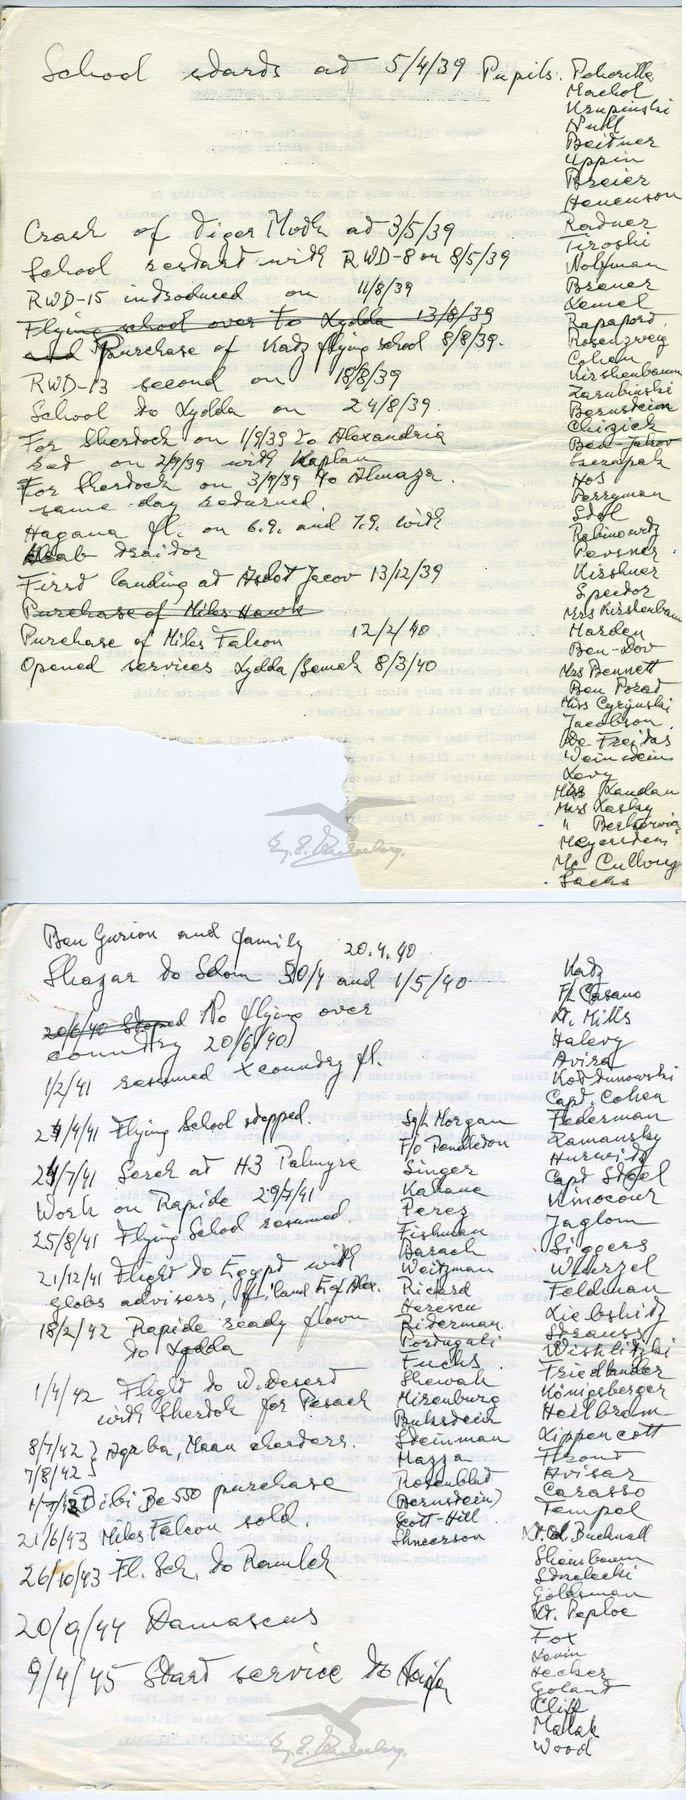 School starts at 5/4/39 Pupils. Pokorilla
Machol
Krupinski
Null
Beitner
Uppin
Breier
Henenson
Radner
Tiroshi
Wolfman
Brener
Lemel
Rapaport
Rosenzweig
Cohen
Kirshenbaum
Zarubinski
Bernstein
Chizick
Ben-Jakov
Hos
Perryman
Stol
Rabinowitz
Pevsner
Kirshner
Spector
Mrs Kirshenbaum
Marden
Ben-Dov
Mrs Bennett
Ben Porat
Miss Cyrynski
Jacobson
De Freitas
Weinstein
Levy
Miss Landau
Miss Lasky
" Berkowitz
Mayerstein
Mc Cullong
Sachs
Crash of Tiger Moth at 3/5/39
School restart with RWD-8 on 8/5/39
RWD-15 introduced on 11/8/39
Flying school over to Lydda 13/8/39
and Purchase of Katz flying school 8/8/39.
RWD-13 second on 18/8/39
School to Lydda on 24/8/39
For Sherdock on 1/9/39 to Alexandria
ret on 2/9/39 with Kaplan
For Sherdock on 3/9/39 to Almaza.
same day returned.
Hagana fl. on 6.9. and 7.9. with
Arab traitor
First landing at Ashdot Jacov 13/12/39
Purchase of Miles Hawk
Purchase of Miles Falcon 12/2/40
Opened services Lydda/Semek 8/3/40
Ben Gurion and family 20.4.40
Shazar to Sdom 30/4 and 1/5/40
20/6/40 Stoped No flying over
country 20/6/40
1/2/41 resumed X country fl.
24/4/41 Flying School stopped.
24/7/41 Serch at H3 Palmyre
Work on Rapide 29/7/41
25/8/41 Flying School resumed
21/12/41 Flight to Egypt with
globs advisers, f'land Eg. Alex.
18/2/42 Rapide ready flown
to Lydda
1/4/42 Flight to W. Desert
with Sherdok for Pesach
8/7/42 } Aqaba, Maan charters.
7/8/42 }
Bibi Be 550 purchase
21/6/43 Miles Falcon sold.
26/10/43 Fl. Sch. to Ramleh
20/9/44 Damascus
9/4/45 Start service to Haifa
Sgt. Morgan
F/o Pendleton
Singer
Kahane
Perez
Fishman
Barach
Weitzman
Rickerd
Herescu
Biderman
Portugali
Fuchs
Shewah
Mirenburg
Buhstein
Steinman
Mazza
Rosenblat
(Bernstein)
Scott-Hill
Shneerson
Katz
F/L Casano
Lt. Mills
Halevy
Avira
Kottunowski
Capt. Cohen
Federman
Zamansky
Hurwitz
Capt Steel
Winocour
Jaglom
Siggers
Whurzel
Feldman
Liebshitz
Strauss
Wishlitzki
Friedlander
Königsberger
Heilbrom
Lippencott
Front
Avisar
Carasso
Tempel
Lt. Col. Bucknall
Shambaum
Strelecki
Goldsman
Lt. Peploe
Fox
Levin
Hecker
Goland
Cliff
Malak
Wood